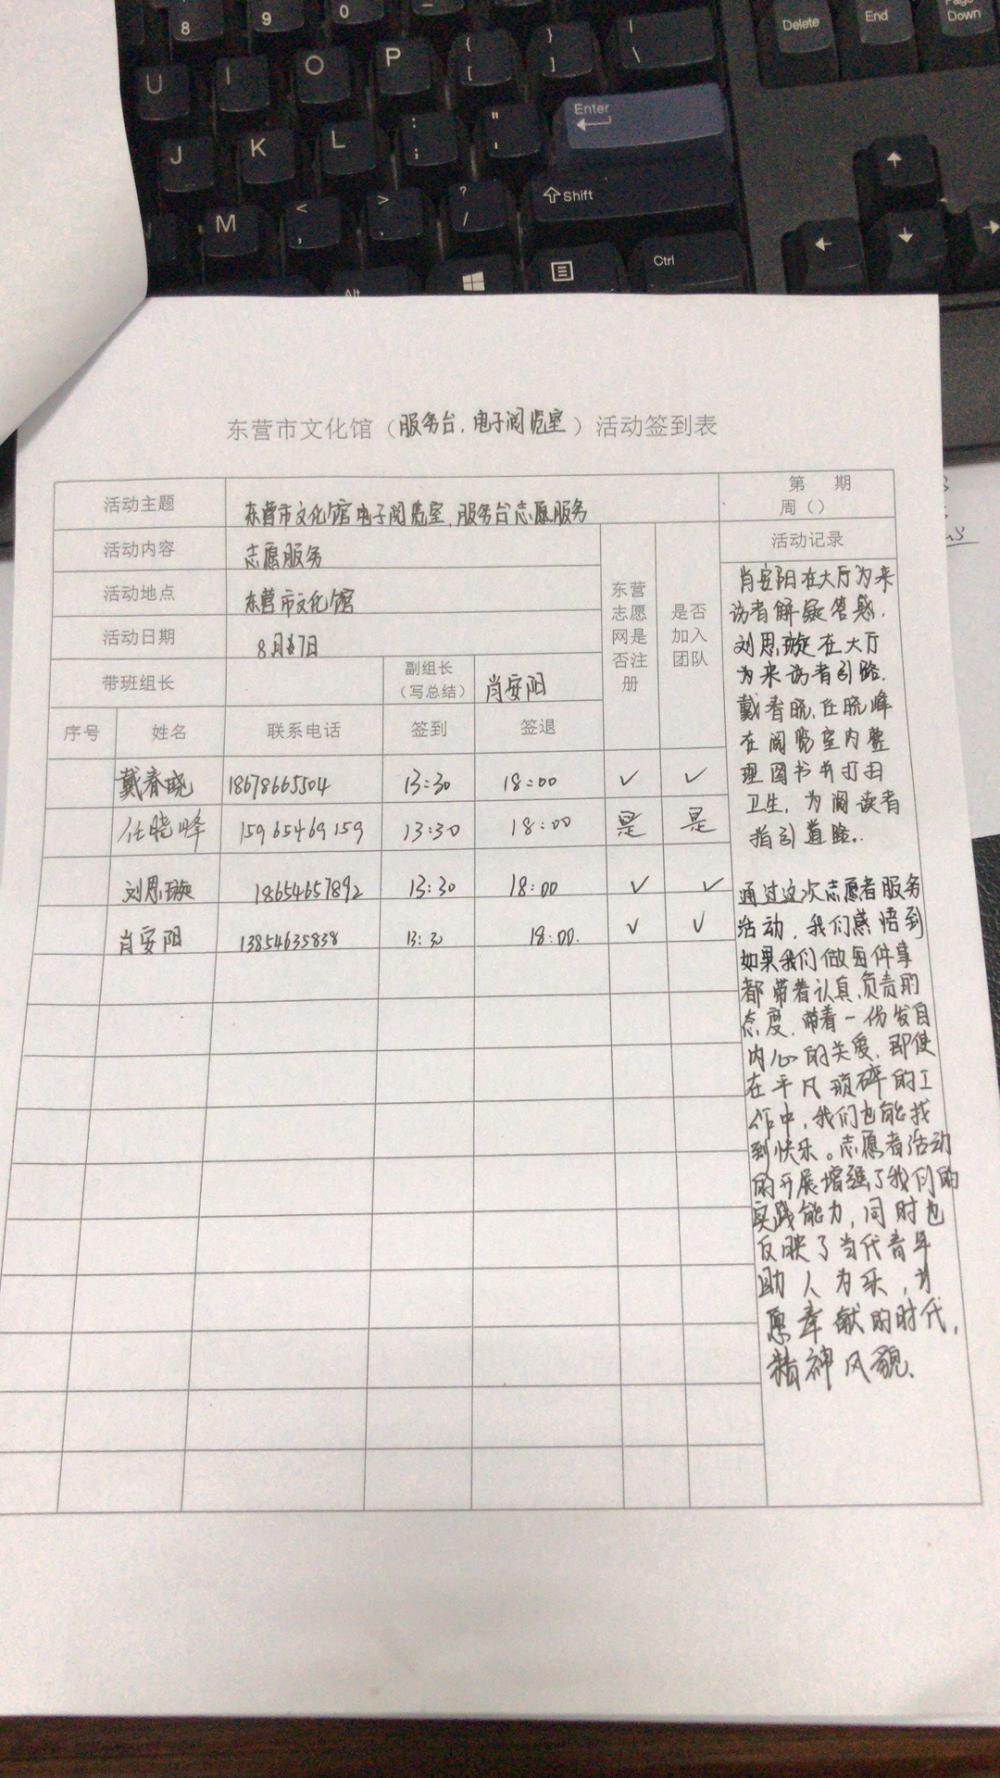 8
9
0
-
Delete
End
Page Down
U
I
O
P
{ [
} ]
| \
J
K
L
: ;
" '
Enter
M
< ,
> .
? /
Shift
Alt
Ctrl
东营市文化馆（服务台.电子阅览室）活动签到表
活动主题 东营市文化馆电子阅览室.服务台志愿服务 第 期 周（）
活动内容 志愿服务 东营志愿网是否注册 是否加入团队 活动记录
活动地点 东营市文化馆
活动日期 8月7日
带班组长 副组长（写总结） 肖安阳
序号 姓名 联系电话 签到 签退
戴春晓 18678665504 13:30 18:00 ✓ ✓
任晓峰 15965469159 13:30 18:00 是 是
刘思璇 18654657892 13:30 18:00 ✓ ✓
肖安阳 13854635838 13:30 18:00. ✓ ✓
肖安阳在大厅为来
访者解疑答惑.
刘思璇在大厅
为来访者引路.
戴春晓.任晓峰
在阅览室内整
理图书并打扫
卫生，为阅读者
指引道路.
通过这次志愿者服务
活动，我们感悟到
如果我们做每件事
都带着认真.负责的
态度.带着一份发自
内心的关爱.即使
在平凡琐碎的工
作中，我们也能找
到快乐。志愿者活动
的开展增强了我们的
实践能力，同时也
反映了当代青年
助人为乐，
愿奉献的时代，
精神风貌.